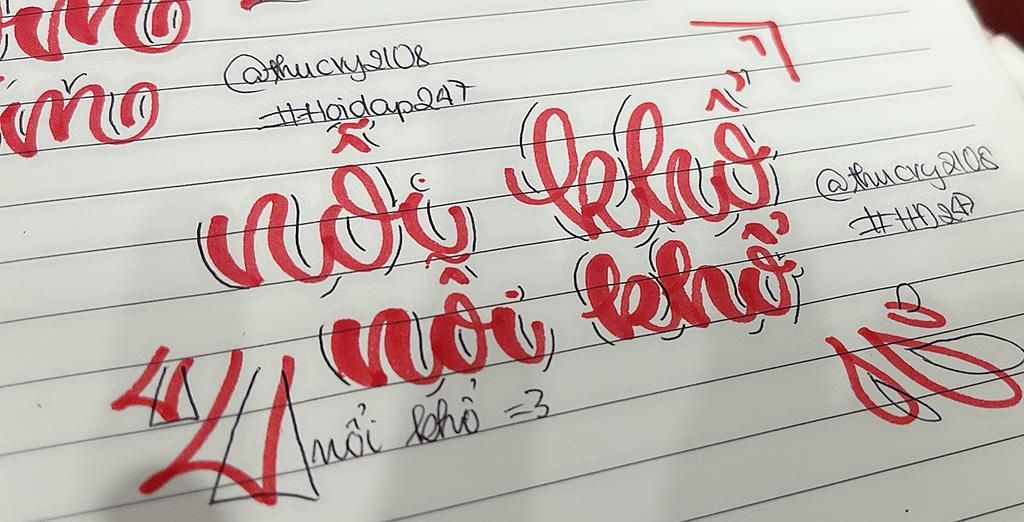 @thucvy2108
#Hoidap247
nỗi khổ
@thucvy2108
#HD247
nỗi khổ
nỗi khổ =3